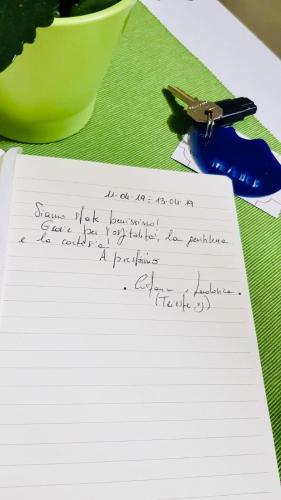 11-04-19 : 13-04-19
Siamo state benissimo!
Grazie per l'ospitalità, la gentilezza
e la cortesia!
A prestissimo
Costanza e Ludovica.